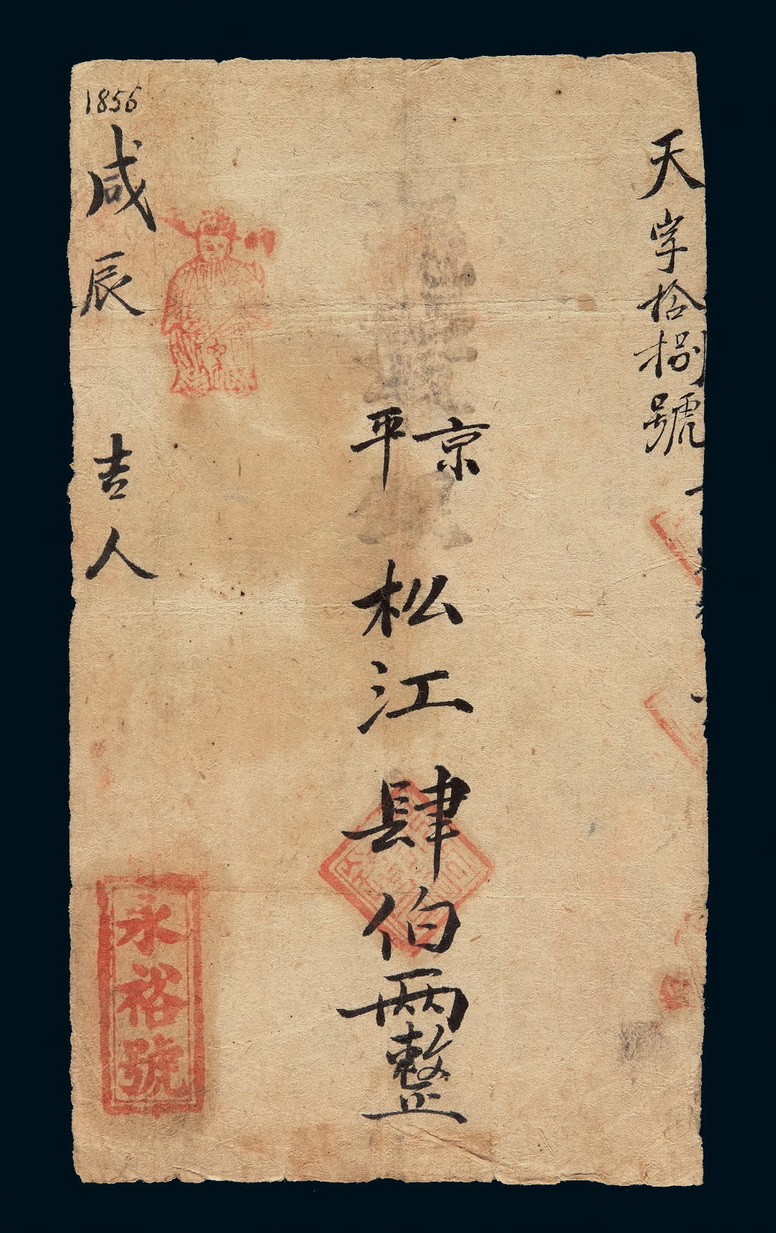 天字拾捌號
京平松江肆伯兩整
1856
咸辰
吉人
永裕號